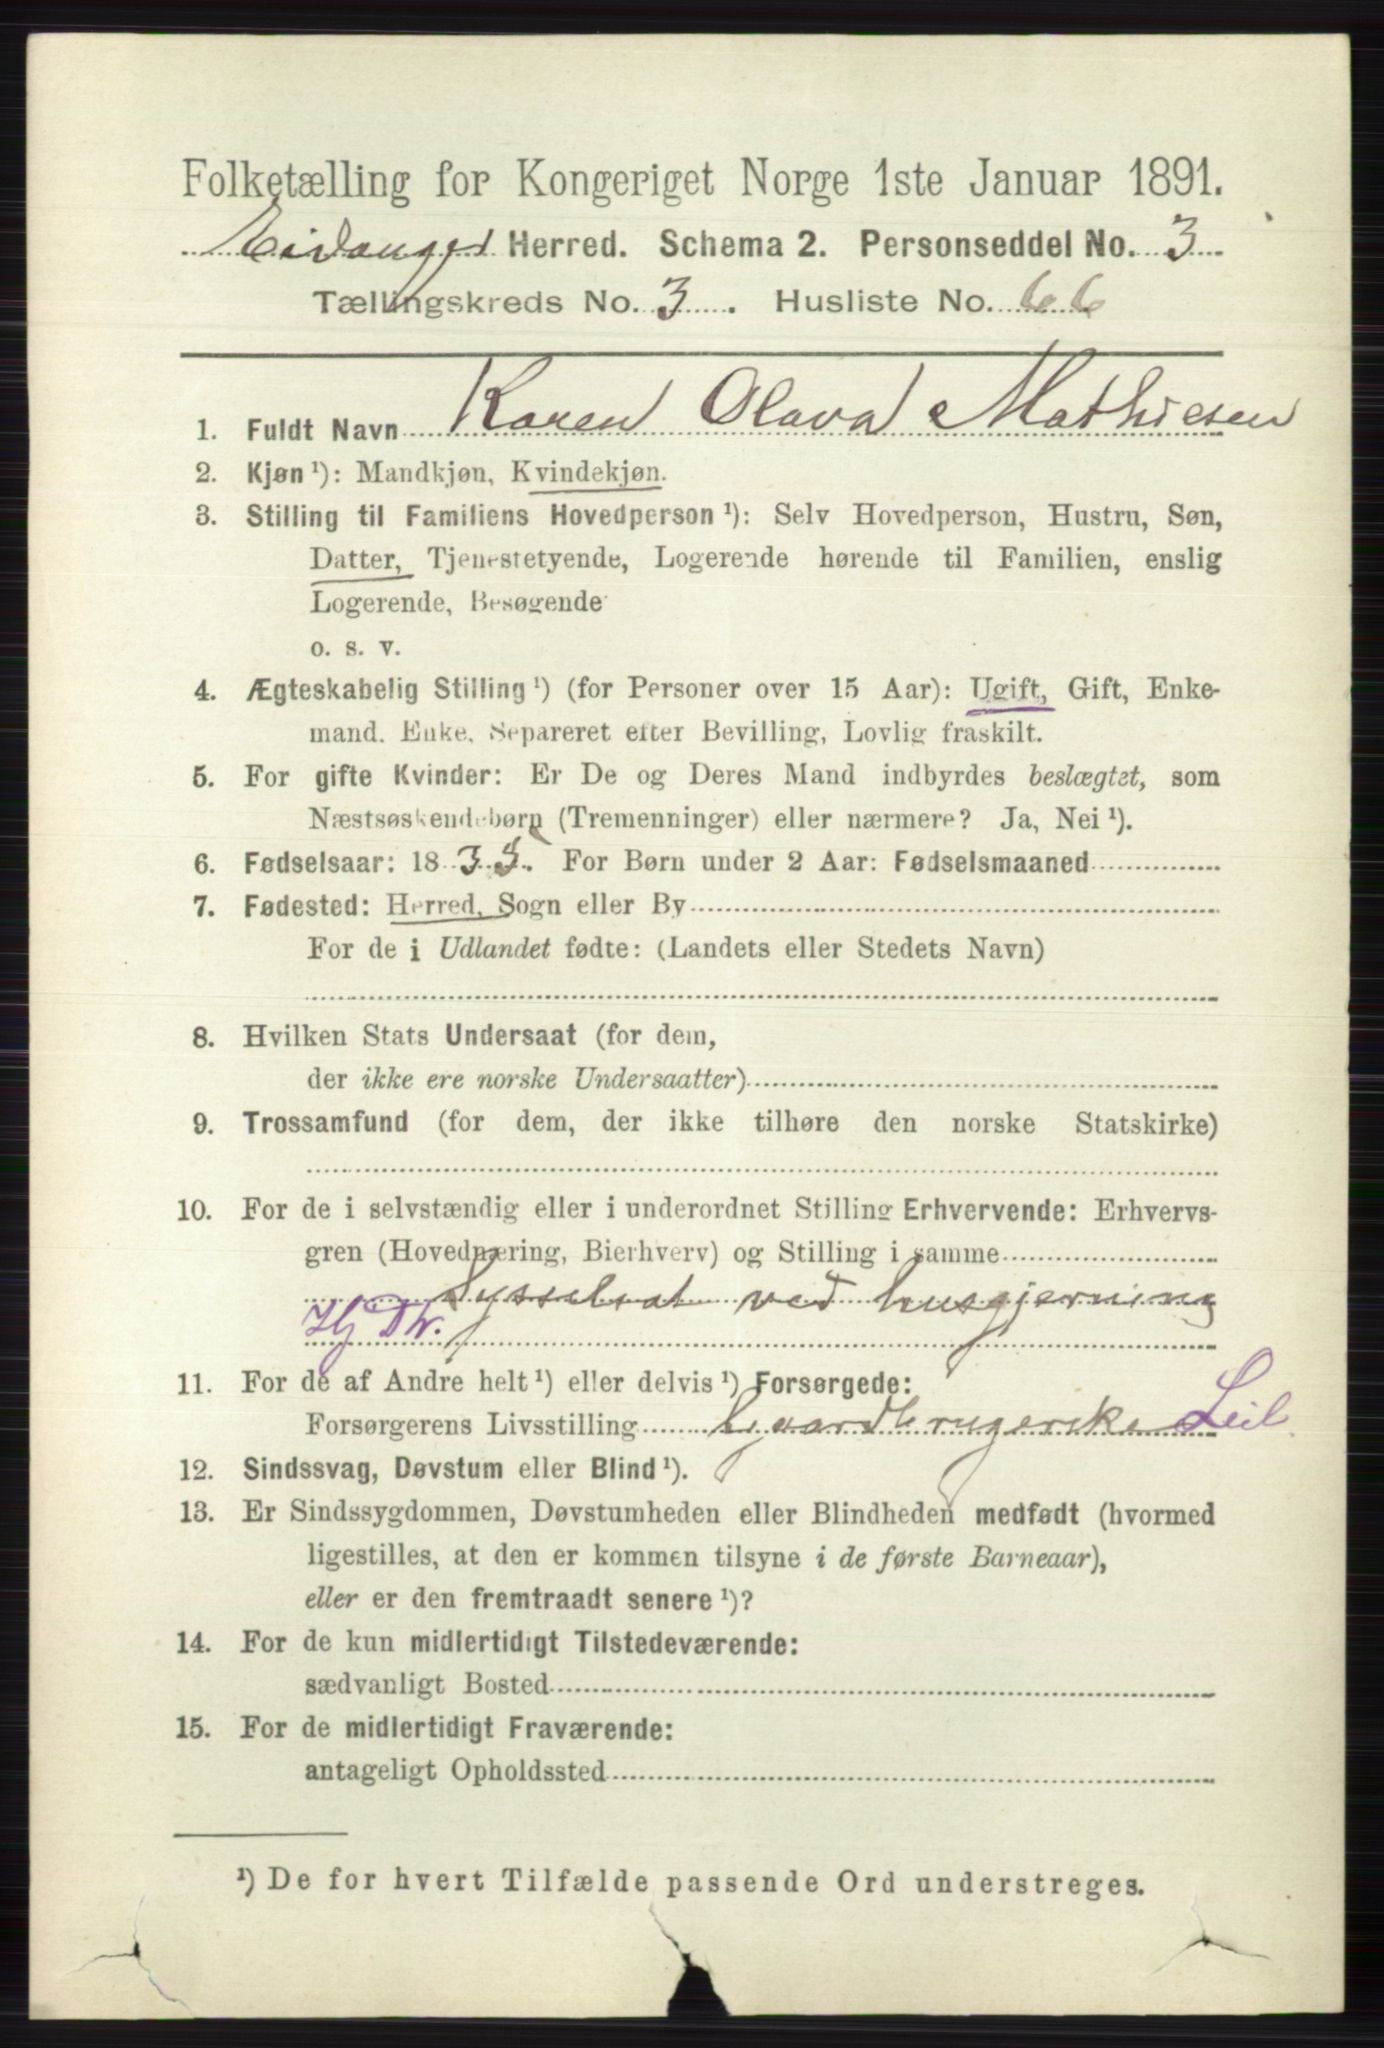 Folketælling for Kongeriget Norge 1ste Januar 1891.
Eidanger Herred. Schema 2. Personseddel No. 3
Tællingskreds No. 3. Husliste No. 66
1. Fuldt Navn Karen Olava Mathiesen
2. Kjøn ¹): Mandkjøn, Kvindekjøn.
3. Stilling til Familiens Hovedperson ¹): Selv Hovedperson, Hustru, Søn,
Datter, Tjenestetyende, Logerende hørende til Familien, enslig
Logerende, Besøgende
o. s. v.
4. Ægteskabelig Stilling ¹) (for Personer over 15 Aar): Ugift, Gift, Enke-
mand, Enke, Separeret efter Bevilling, Lovlig fraskilt.
5. For gifte Kvinder: Er De og Deres Mand indbyrdes beslægtet, som
Næstsøskendebørn (Tremenninger) eller nærmere? Ja, Nei ¹).
6. Fødselsaar: 1835. For Børn under 2 Aar: Fødselsmaaned
7. Fødested: Herred, Sogn eller By
For de i Udlandet fødte: (Landets eller Stedets Navn)
8. Hvilken Stats Undersaat (for dem,
der ikke ere norske Undersaatter)
9. Trossamfund (for dem, der ikke tilhøre den norske Statskirke)
10. For de i selvstændig eller i underordnet Stilling Erhvervende: Erhvervs-
gren (Hovednæring, Bierhverv) og Stilling i samme
Sysselsat ved husgjerning
Hj Dtr.
11. For de af Andre helt ¹) eller delvis ¹) Forsørgede:
Forsørgerens Livsstilling Gaardbrugerske Leil
12. Sindssvag, Døvstum eller Blind ¹).
13. Er Sindssygdommen, Døvstumheden eller Blindheden medfødt (hvormed
ligestilles, at den er kommen tilsyne i de første Barneaar),
eller er den fremtraadt senere ¹)?
14. For de kun midlertidigt Tilstedeværende:
sædvanligt Bosted
15. For de midlertidigt Fraværende:
antageligt Opholdssted
¹) De for hvert Tilfælde passende Ord understreges.